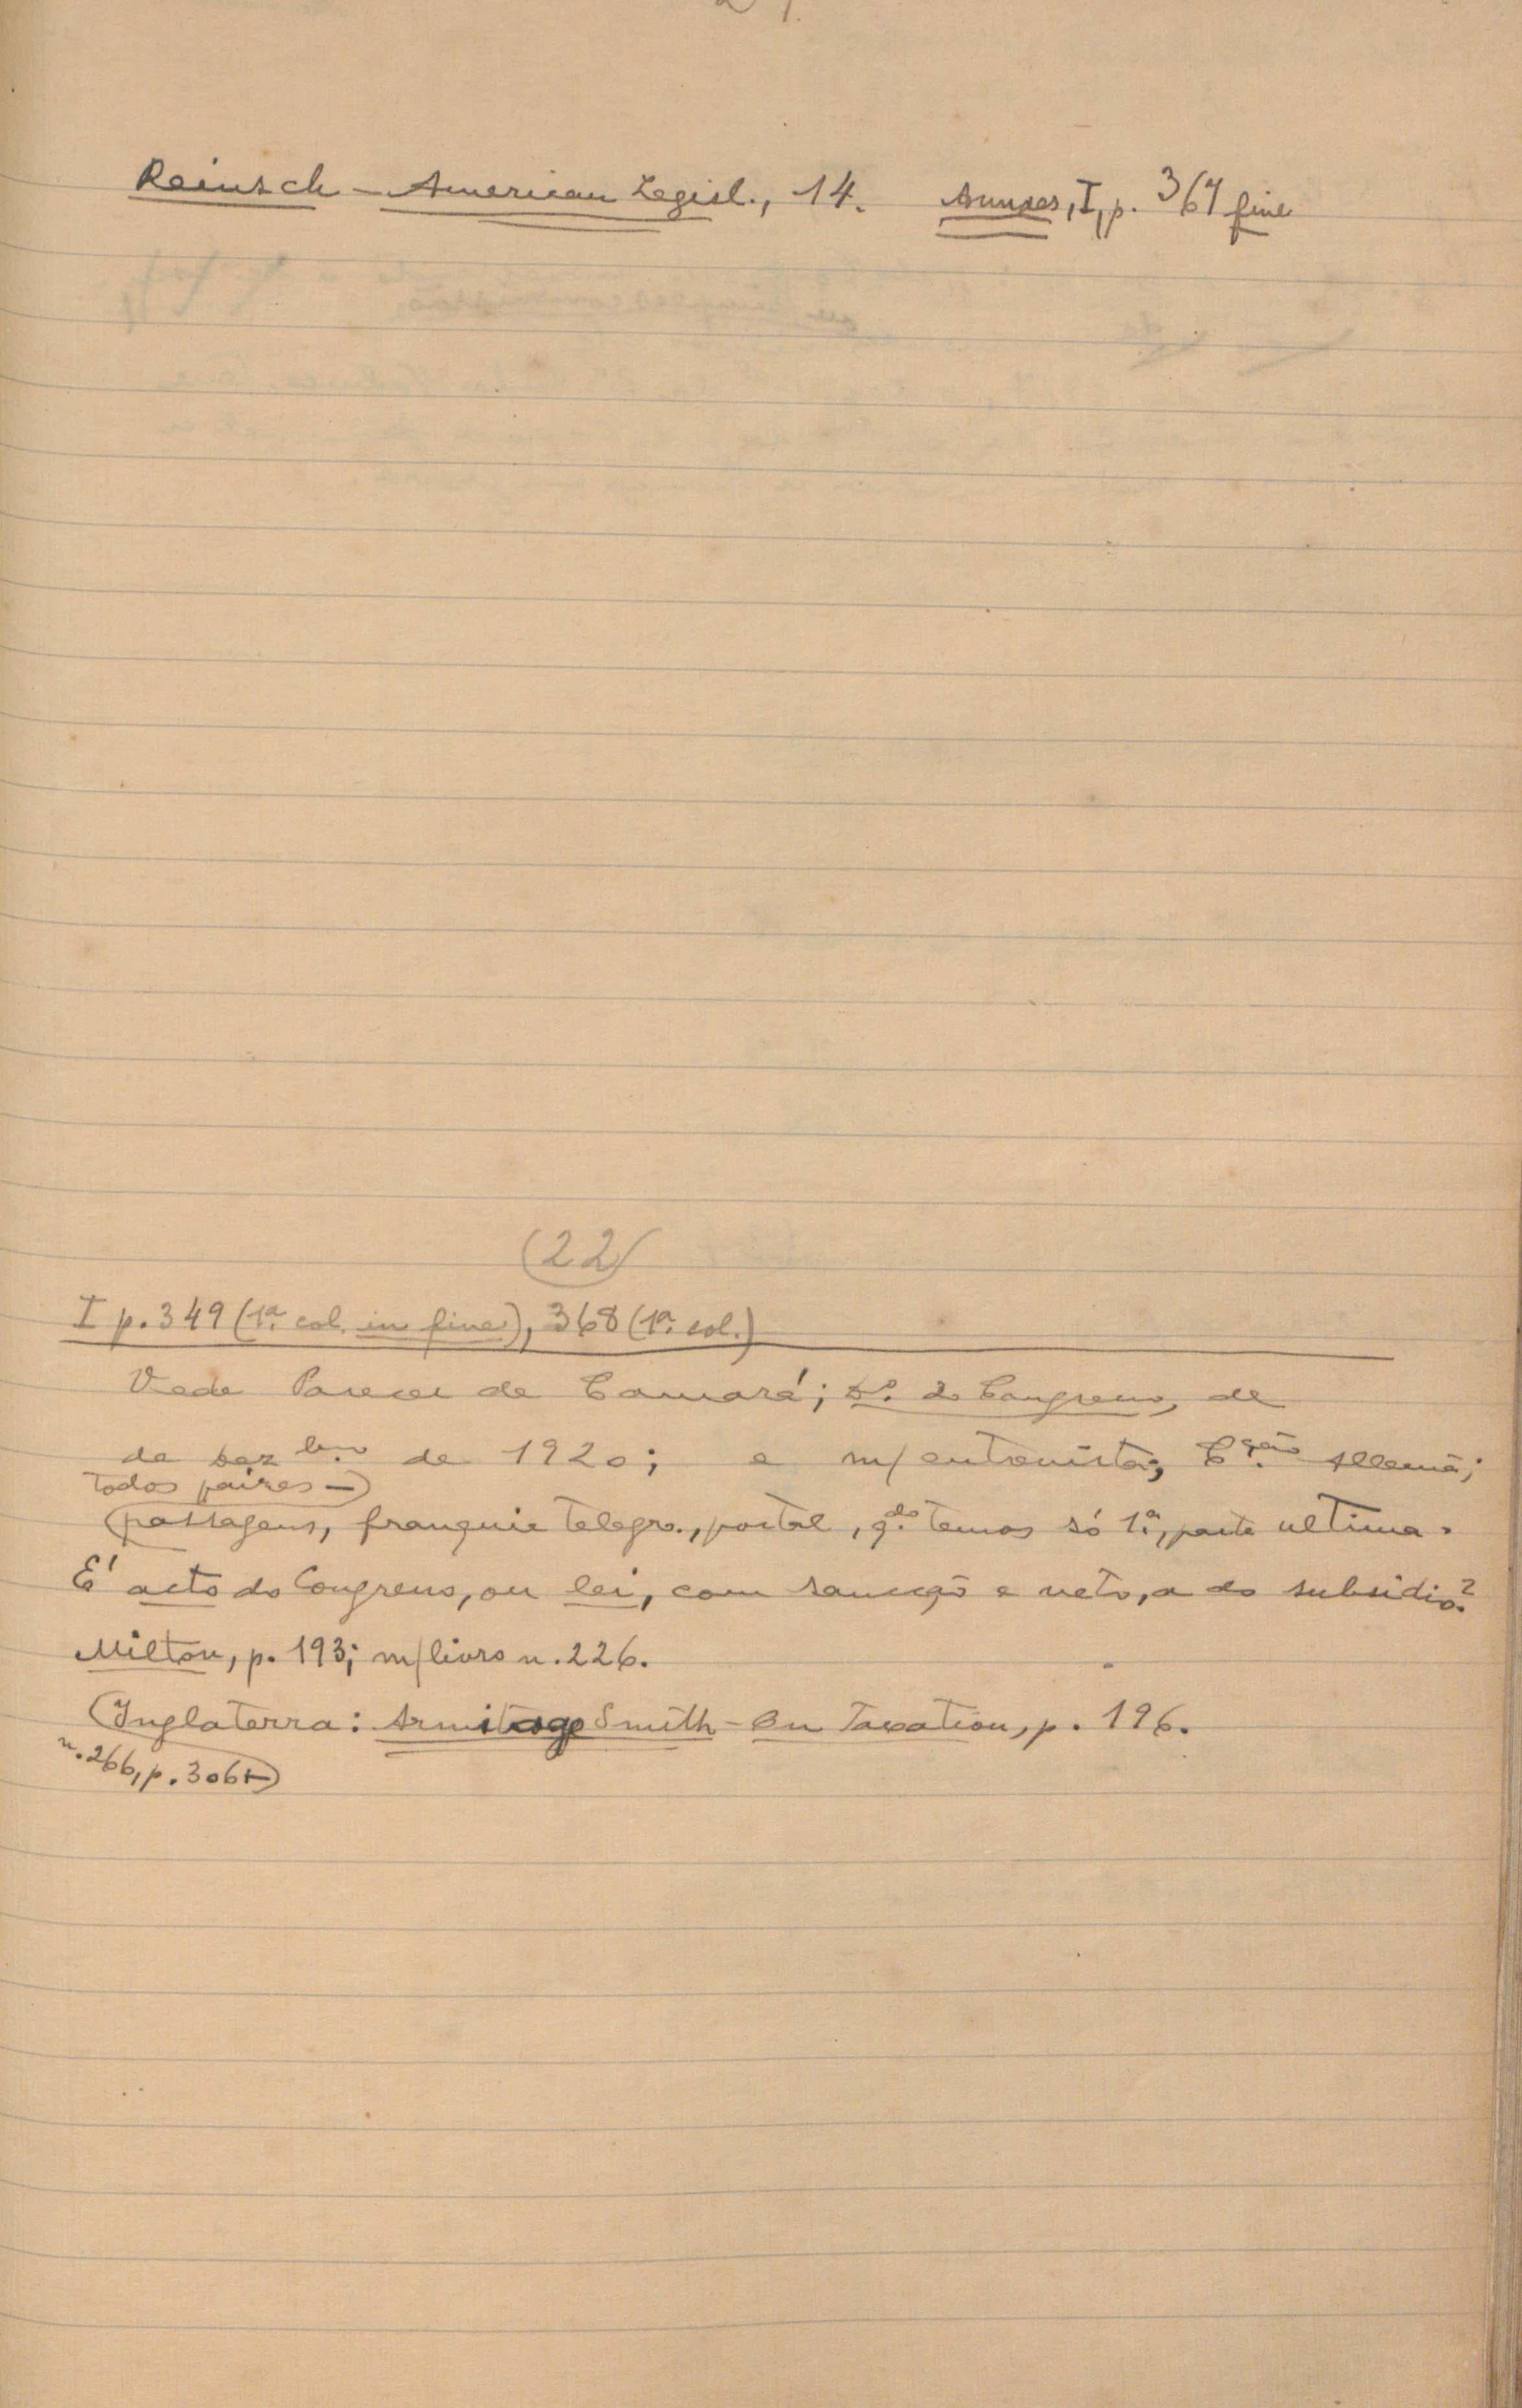 Reinsch - American Legisl., 14. Annaes, I, p. 367 fine
(22)
I p. 349 (1ª. col. in fine), 368 (1ª. col.)
Vede Parecer de Camará; Dº. do Congresso, de
de dezbro de 1920; e m/ entrevista; Cção. Allemã;
todos paizes -)
(passagens, franquia telegr., postal, qdo. temos só 1ª, parte ultima.
É acto do Congresso, ou lei, com sancção e veto, a do subsidio?
Milton, p. 193; m/livro n. 226.
(Inglaterra: Armitage Smith - On Taxation, p. 196.
n. 266, p. 306